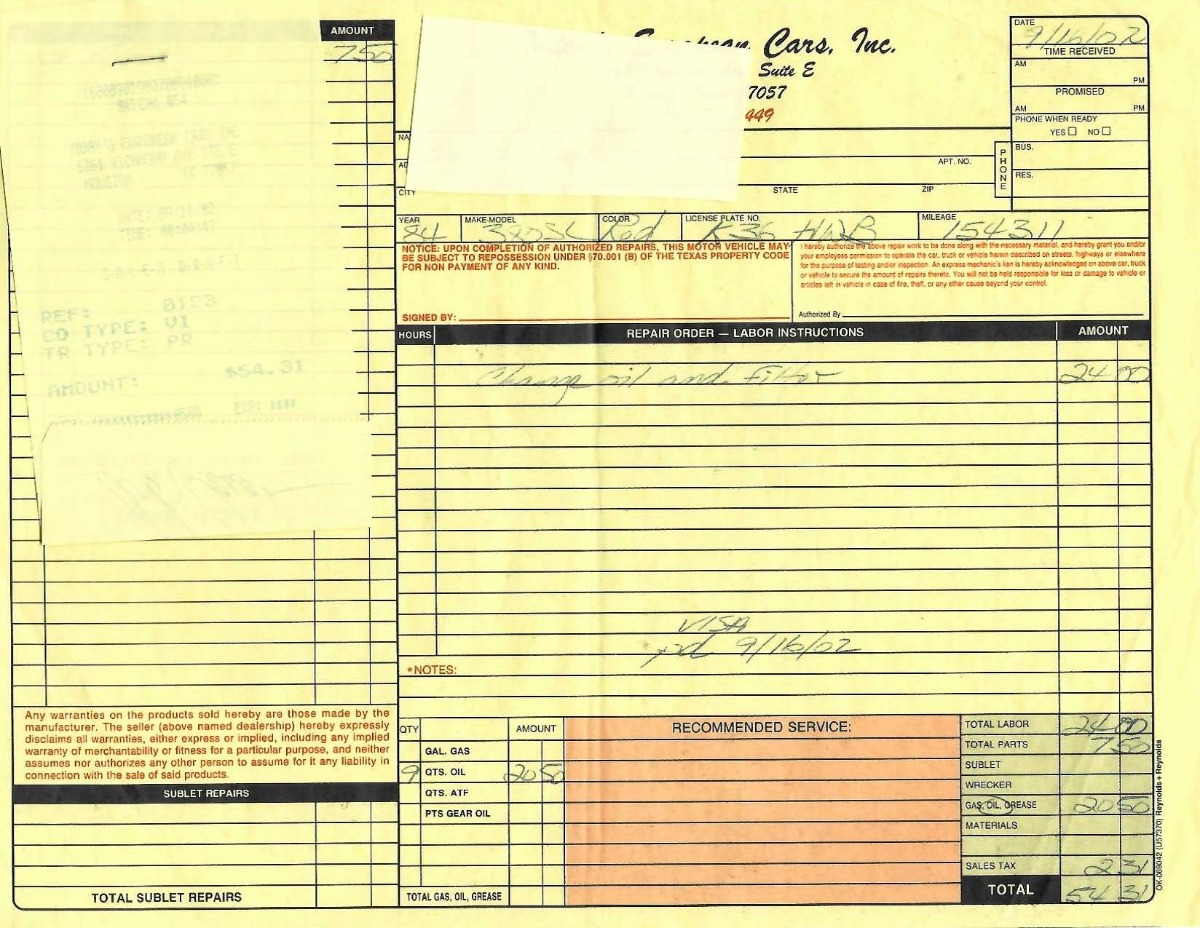 AMOUNT
7 50
European Cars, Inc.
Suite E
7057
449
DATE
9/16/02
TIME RECEIVED
AM
PM
PROMISED
AM PM
PHONE WHEN READY
YES NO
BUS.
RES.
PHONE
NA
AD
APT. NO.
CITY
STATE ZIP
YEAR MAKE-MODEL COLOR LICENSE PLATE NO. MILEAGE
84 380SL Red K36 HWB 154311
NOTICE: UPON COMPLETION OF AUTHORIZED REPAIRS, THIS MOTOR VEHICLE MAY
BE SUBJECT TO REPOSSESSION UNDER §70.001 (B) OF THE TEXAS PROPERTY CODE
FOR NON PAYMENT OF ANY KIND.
SIGNED BY:
I hereby authorize the above repair work to be done along with the necessary material, and hereby grant you and/or
your employees permission to operate the car, truck or vehicle herein described on streets, highways or elsewhere
for the purpose of testing and/or inspection. An express mechanic's lien is hereby acknowledged on above car, truck
or vehicle to secure the amount of repairs thereto. You will not be held responsible for loss or damage to vehicle or
articles left in vehicle in case of fire, theft, or any other cause beyond your control.
Authorized By
HOURS REPAIR ORDER — LABOR INSTRUCTIONS AMOUNT
Change oil and filter 24 00
VISA
pd 9/16/02
*NOTES:
REF: B123
CD TYPE: VI
TR TYPE: PR
AMOUNT: $54.31
EXP:
Any warranties on the products sold hereby are those made by the
manufacturer. The seller (above named dealership) hereby expressly
disclaims all warranties, either express or implied, including any implied
warranty of merchantability or fitness for a particular purpose, and neither
assumes nor authorizes any other person to assume for it any liability in
connection with the sale of said products.
SUBLET REPAIRS
TOTAL SUBLET REPAIRS
QTY AMOUNT
GAL. GAS
9 QTS. OIL 20 50
QTS. ATF
PTS GEAR OIL
TOTAL GAS, OIL, GREASE
RECOMMENDED SERVICE:
TOTAL LABOR 24 00
TOTAL PARTS 7 50
SUBLET
WRECKER
GAS, OIL, GREASE 20 50
MATERIALS
SALES TAX 2 31
TOTAL 54 31
OK-069042 (U57370) Reynolds + Reynolds